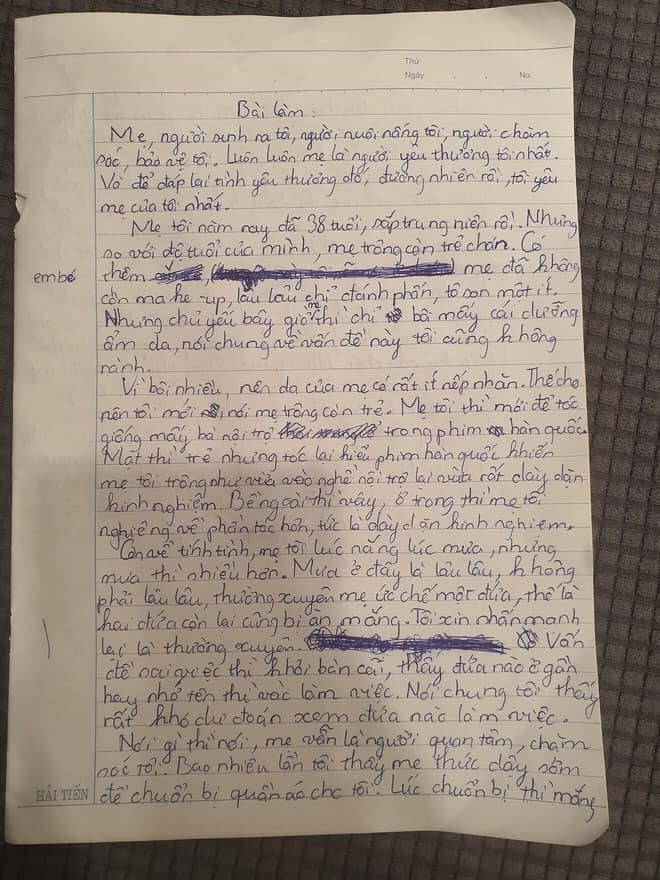 Thứ
Ngày . . No.
Bài làm:
Mẹ, người sinh ra tôi, người nuôi nấng tôi, người chăm
sóc, bảo vệ tôi. Luôn luôn mẹ là người yêu thương tôi nhất.
Và để đáp lại tình yêu thương đó, đương nhiên rồi, tôi yêu
mẹ của tôi nhất.
Mẹ tôi năm nay đã 38 tuổi, sắp trung niên rồi. Nhưng
so với độ tuổi của mình, mẹ trông còn trẻ chán. Có
em bé
thêm mẹ đã không
còn make-up, lâu lâu chỉ đánh phấn, tô son một ít.
Nhưng chủ yếu bây giờ mẹ thì chỉ bôi mấy cái dưỡng
ẩm da, nói chung về vấn đề này tôi cũng không
rành.
Vì bôi nhiều, nên da của mẹ có rất ít nếp nhăn. Thế cho
nên tôi mới nói mẹ trông còn trẻ. Mẹ tôi thì mới để tóc
giống mấy bà nội trợ trong phim hàn quốc.
Mặt thì trẻ nhưng tóc lại kiểu phim hàn quốc khiến
mẹ tôi trông như vừa vào nghề nội trợ lại vừa rất dày dặn
kinh nghiệm. Bề ngoài thì vậy, ở trong thì mẹ tôi
nghiêng về phần tóc hơn, tức là dày dặn kinh nghiệm.
Còn về tính tình, mẹ tôi lúc nắng lúc mưa, nhưng
mưa thì nhiều hơn. Mưa ở đây là lâu lâu, không
phải lâu lâu, thường xuyên mẹ ức chế một đứa, thế là
hai đứa còn lại cũng bị ăn mắng. Tôi xin nhấn mạnh
lại là thường xuyên. Vấn
đề sai việc thì khỏi bàn cãi, thấy đứa nào ở gần
hay nhớ tên thì vác làm việc. Nói chung tôi thấy
rất khó dự đoán xem đứa nào làm việc.
Nói gì thì nói, mẹ vẫn là người quan tâm, chăm
sóc tôi. Bao nhiêu lần tôi thấy mẹ thức dậy sớm
để chuẩn bị quần áo cho tôi. Lúc chuẩn bị thì mắng
HẢI TIẾN